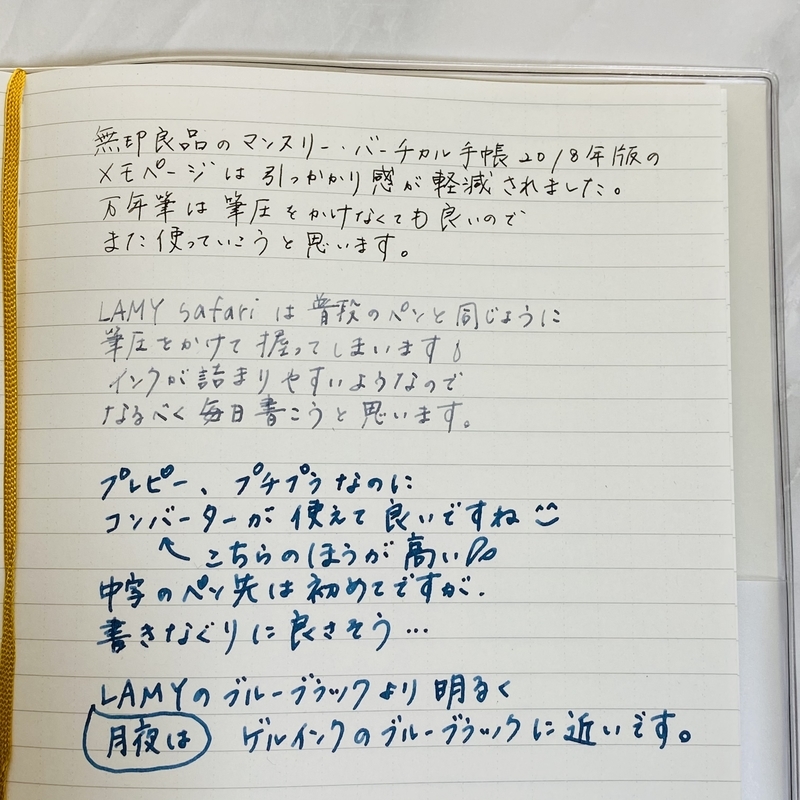 無印良品のマンスリー・バーチカル手帳2018年版の
メモページは引っかかり感が軽減されました。
万年筆は筆圧をかけなくても良いので
また使っていこうと思います。
LAMY safariは普段のペンと同じように
筆圧をかけて握ってしまいます
インクが詰まりやすいようなので
なるべく毎日書こうと思います。
プレピー、プチプラなのに
コンバーターが使えて良いですね
↖こちらのほうが高い
中字のペン先は初めてですが、
書きなぐりに良さそう…
LAMYのブルーブラックより明るく
月夜は ゲルインクのブルーブラックに近いです。